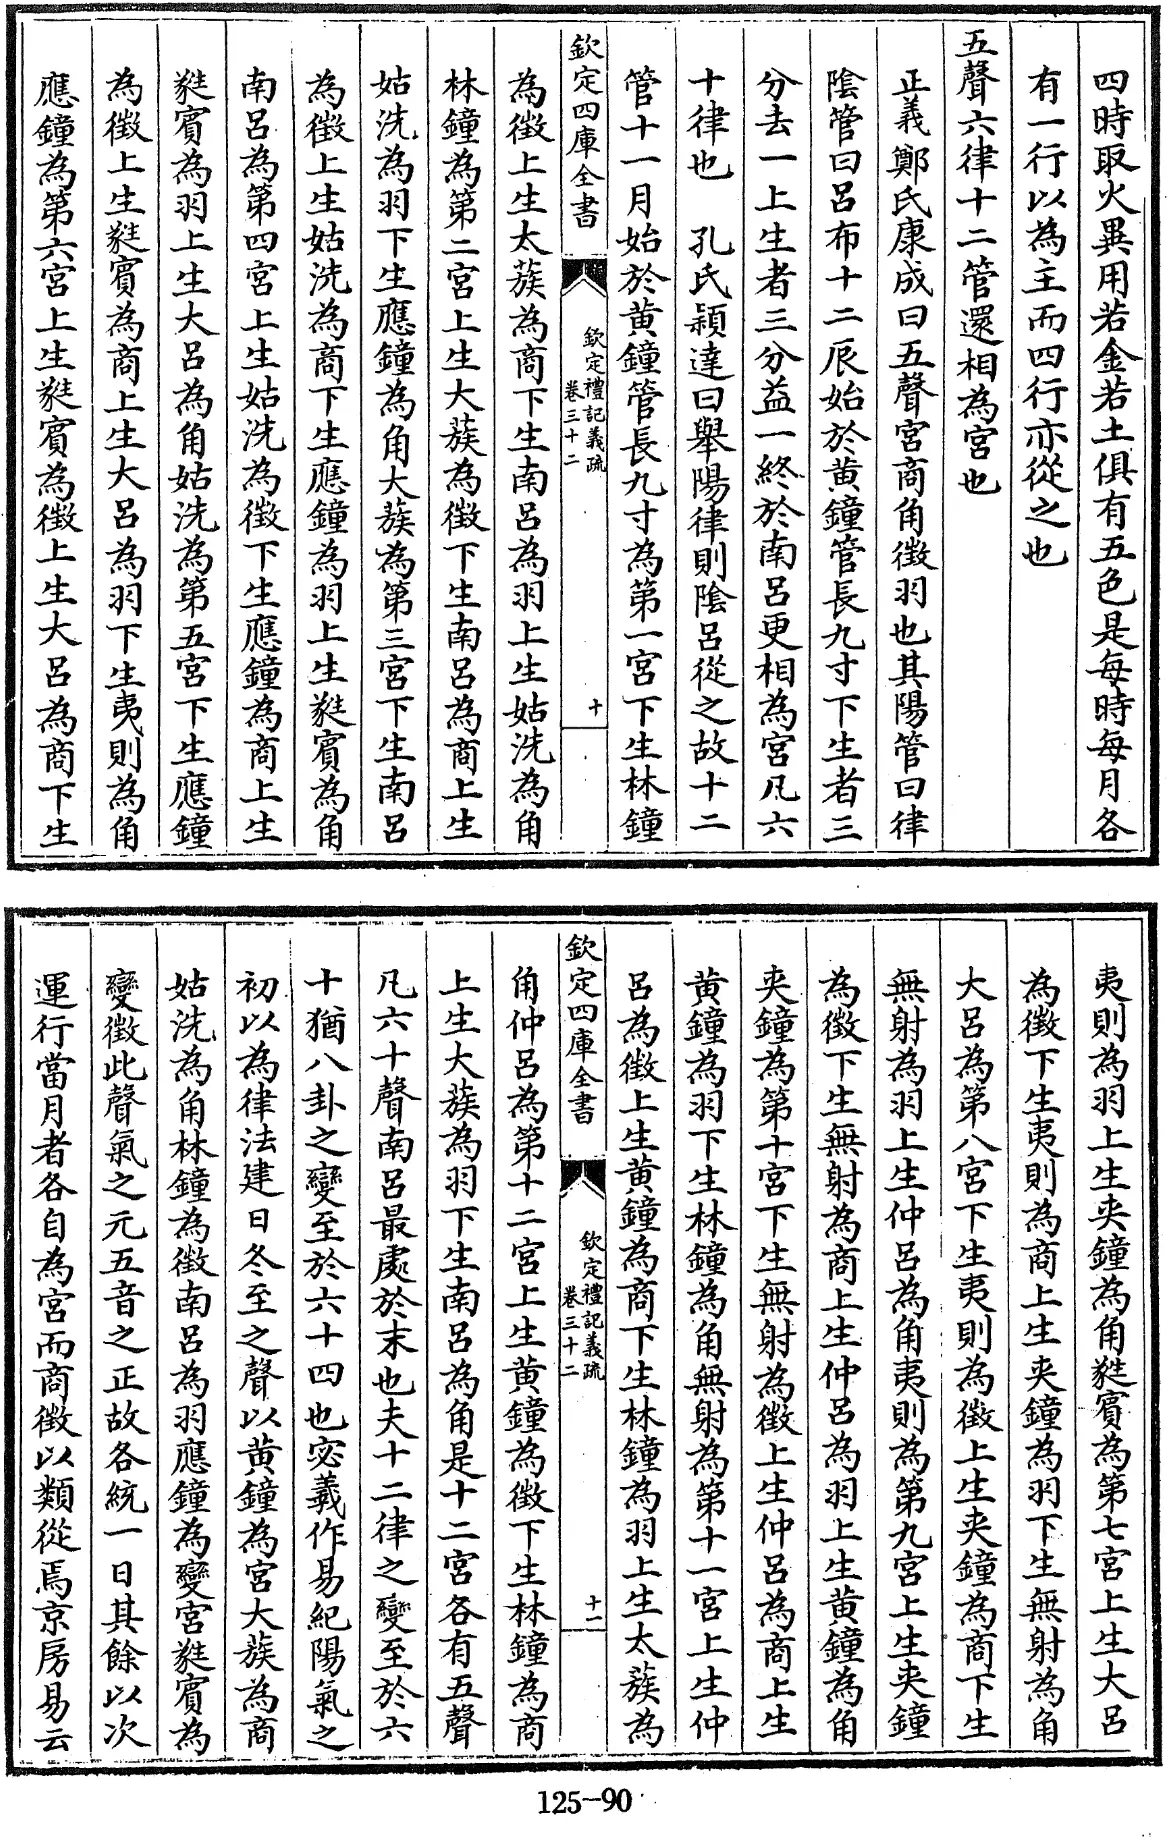 四時取火異用若金若土俱有五色是每時每月各
有一行以為主而四行亦從之也
五聲六律十二管還相為宮也
正義鄭氏康成曰五聲宮商角徵羽也其陽管曰律
陰管曰呂布十二辰始於黃鐘管長九寸下生者三
分去一上生者三分益一終於南呂更相為宮凡六
十律也　孔氏穎達曰舉陽律則陰呂從之故十二
管十一月始於黃鐘管長九寸為第一宮下生林鐘
欽定四庫全書
欽定禮記義疏
卷三十二
十
為徵上生太蔟為商下生南呂為羽上生姑洗為角
林鐘為第二宮上生大蔟為徵下生南呂為商上生
姑洗為羽下生應鐘為角大蔟為第三宮下生南呂
為徵上生姑洗為商下生應鐘為羽上生蕤賓為角
南呂為第四宮上生姑洗為徵下生應鐘為商上生
蕤賓為羽上生大呂為角姑洗為第五宮下生應鐘
為徵上生蕤賓為商上生大呂為羽下生夷則為角
應鐘為第六宮上生蕤賓為徵上生大呂為商下生
夷則為羽上生夾鐘為角蕤賓為第七宮上生大呂
為徵下生夷則為商上生夾鐘為羽下生無射為角
大呂為第八宮下生夷則為徵上生夾鐘為商下生
無射為羽上生仲呂為角夷則為第九宮上生夾鐘
為徵下生無射為商上生仲呂為羽上生黃鐘為角
夾鐘為第十宮下生無射為徵上生仲呂為商上生
黃鐘為羽下生林鐘為角無射為第十一宮上生仲
呂為徵上生黃鐘為商下生林鐘為羽上生太蔟為
欽定四庫全書
欽定禮記義疏
卷三十二
十一
角仲呂為第十二宮上生黃鐘為徵下生林鐘為商
上生大蔟為羽下生南呂為角是十二宮各有五聲
凡六十聲南呂最處於末也夫十二律之變至於六
十猶八卦之變至於六十四也宓羲作易紀陽氣之
初以為律法建日冬至之聲以黃鐘為宮大蔟為商
姑洗為角林鐘為徵南呂為羽應鐘為變宮蕤賓為
變徵此聲氣之元五音之正故各統一日其餘以次
運行當月者各自為宮而商徵以類從焉京房易云
125-90